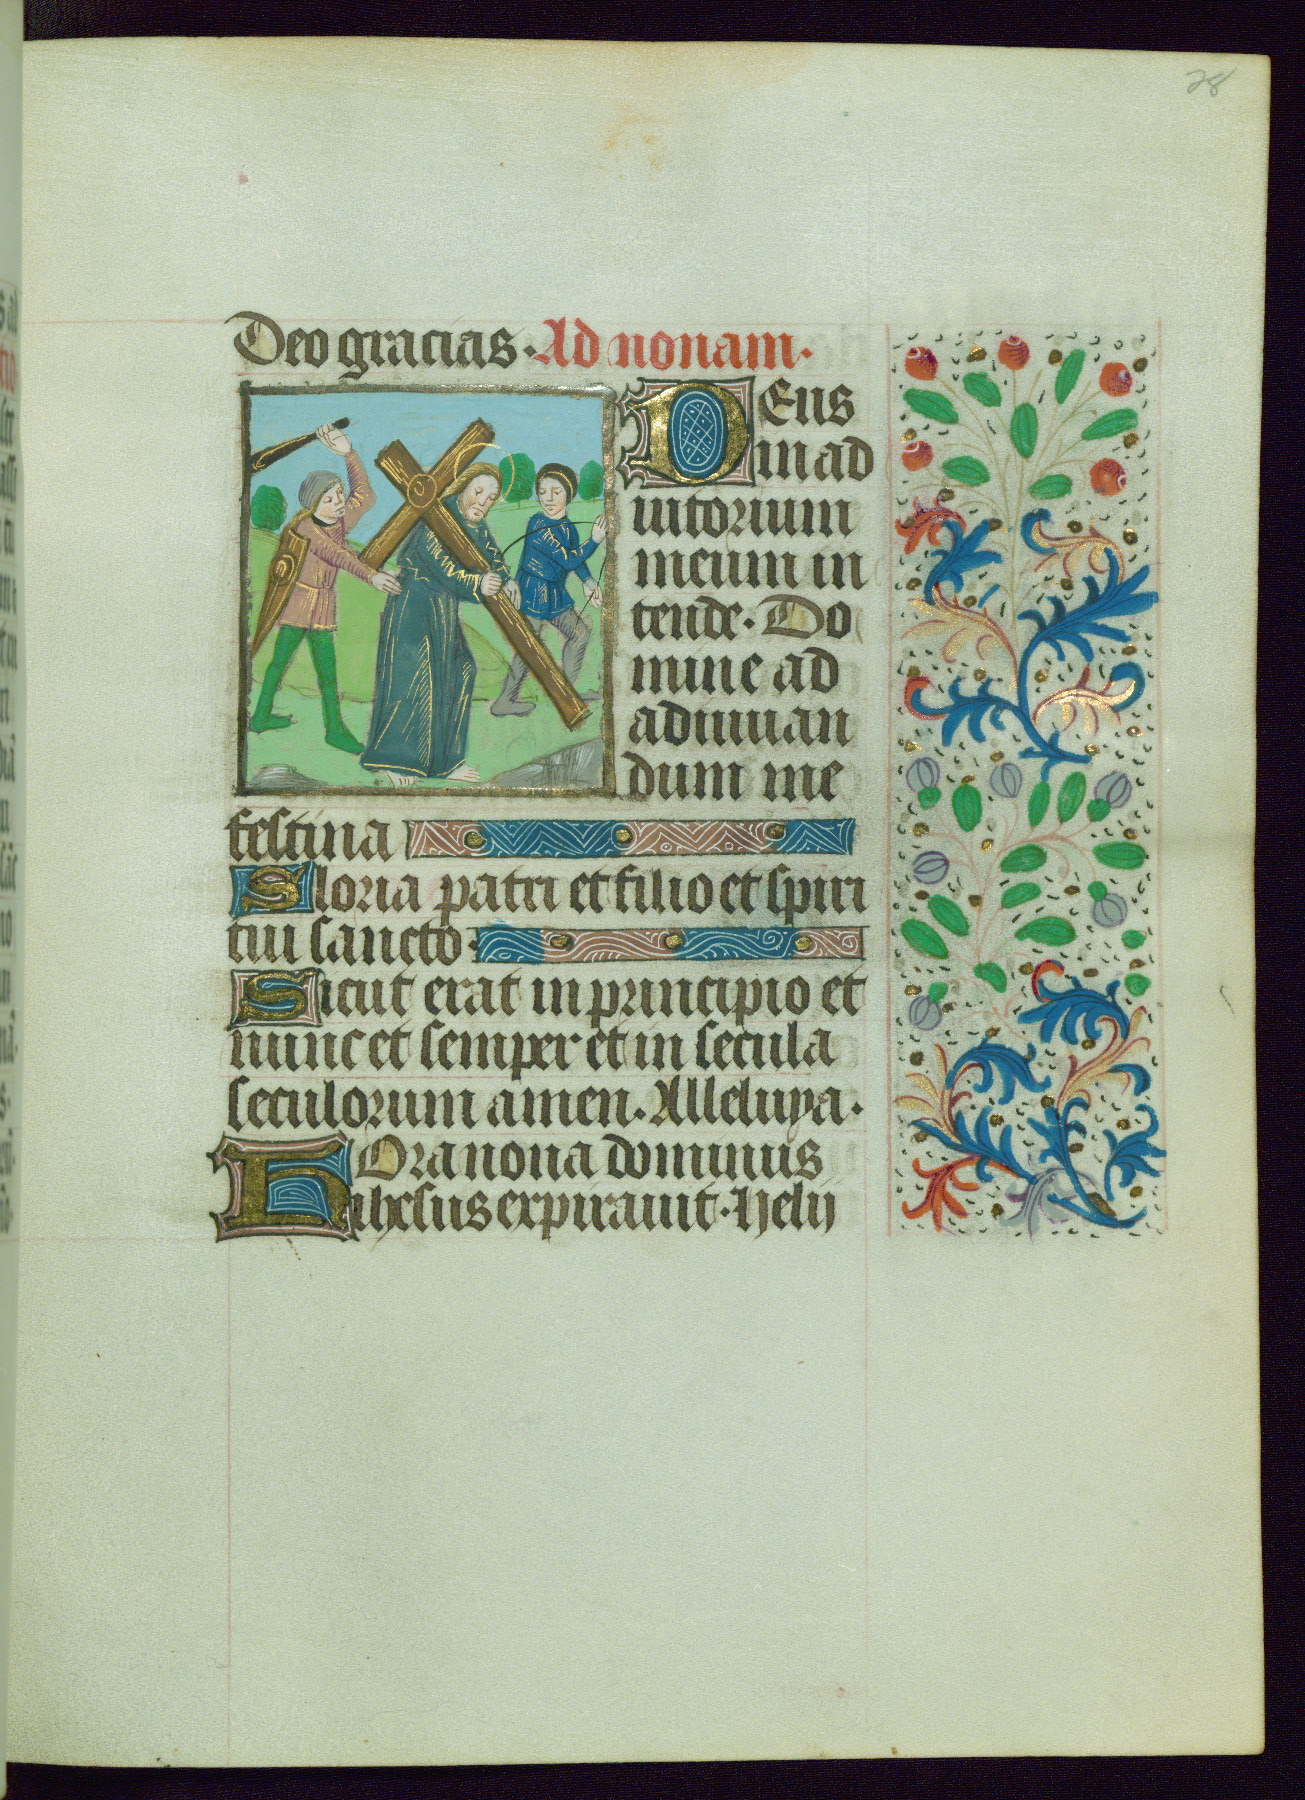 28
Deo gracias. Ad nonam.
Deus
in ad
iutorium
meum in
tende. Do
mine ad
adiuuan
dum me
festina
Gloria patri et filio et spiri
tui sancto.
Sicut erat in principio et
nunc et semper et in secula
seculorum amen. Alleluya.
Hora nona dominus
ihesus expirauit. Hely